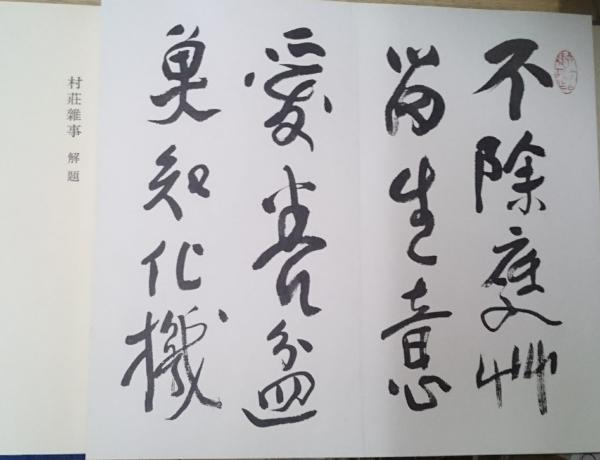 不除庭艸
留生意
愛養盆
魚知化機
村莊雜事 解題